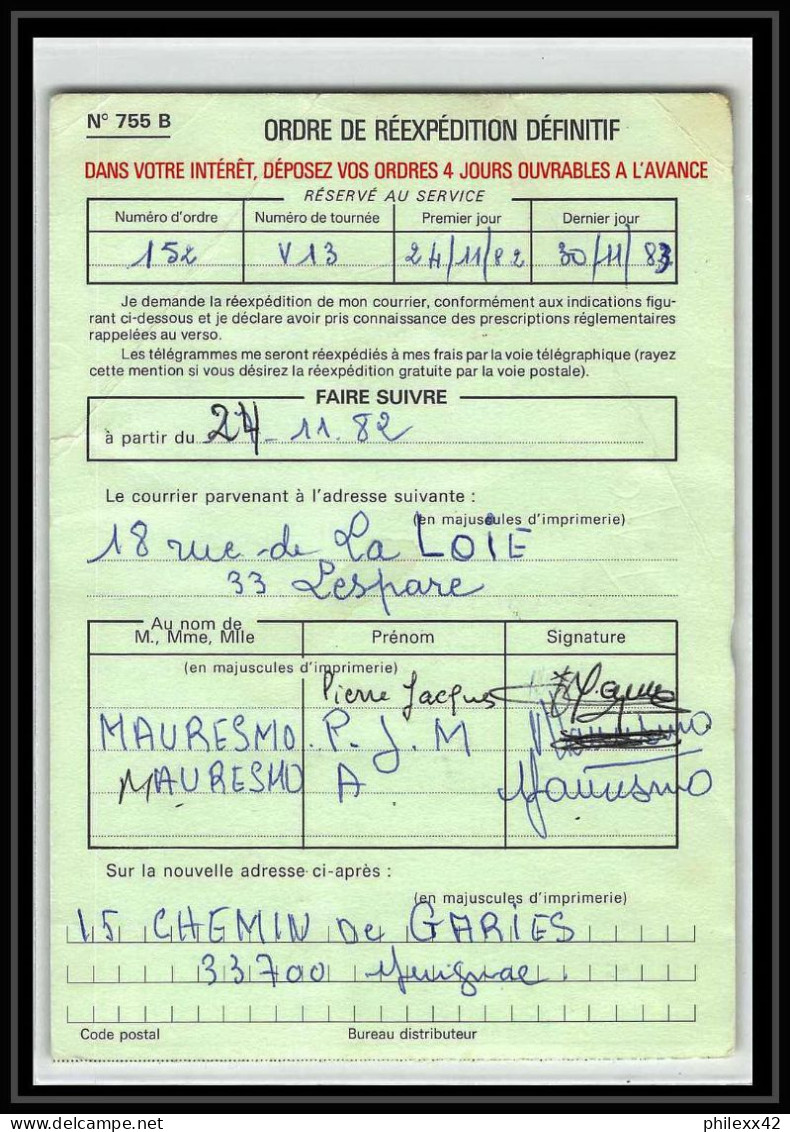 N° 755 B
ORDRE DE RÉEXPÉDITION DÉFINITIF
DANS VOTRE INTÉRÊT, DÉPOSEZ VOS ORDRES 4 JOURS OUVRABLES A L'AVANCE
RÉSERVÉ AU SERVICE
Numéro d'ordre Numéro de tournée Premier jour Dernier jour
152 V13 24/11/82 30/11/83
Je demande la réexpédition de mon courrier, conformément aux indications figu-
rant ci-dessous et je déclare avoir pris connaissance des prescriptions réglementaires
rappelées au verso.
Les télégrammes me seront réexpédiés à mes frais par la voie télégraphique (rayez
cette mention si vous désirez la réexpédition gratuite par la voie postale).
FAIRE SUIVRE
à partir du 24-11.82
Le courrier parvenant à l'adresse suivante :
(en majuscules d'imprimerie)
18 rue de La LOIE
33 Lespare
Au nom de
M., Mme, Mlle Prénom Signature
(en majuscules d'imprimerie)
Pierre Jacques
MAURESMO. P. J. M
MAURESMO A Mauresmo
Sur la nouvelle adresse ci-après :
(en majuscules d'imprimerie)
15 CHEMIN De GARIES
33700 Merignac.
Code postal Bureau distributeur
philexx42